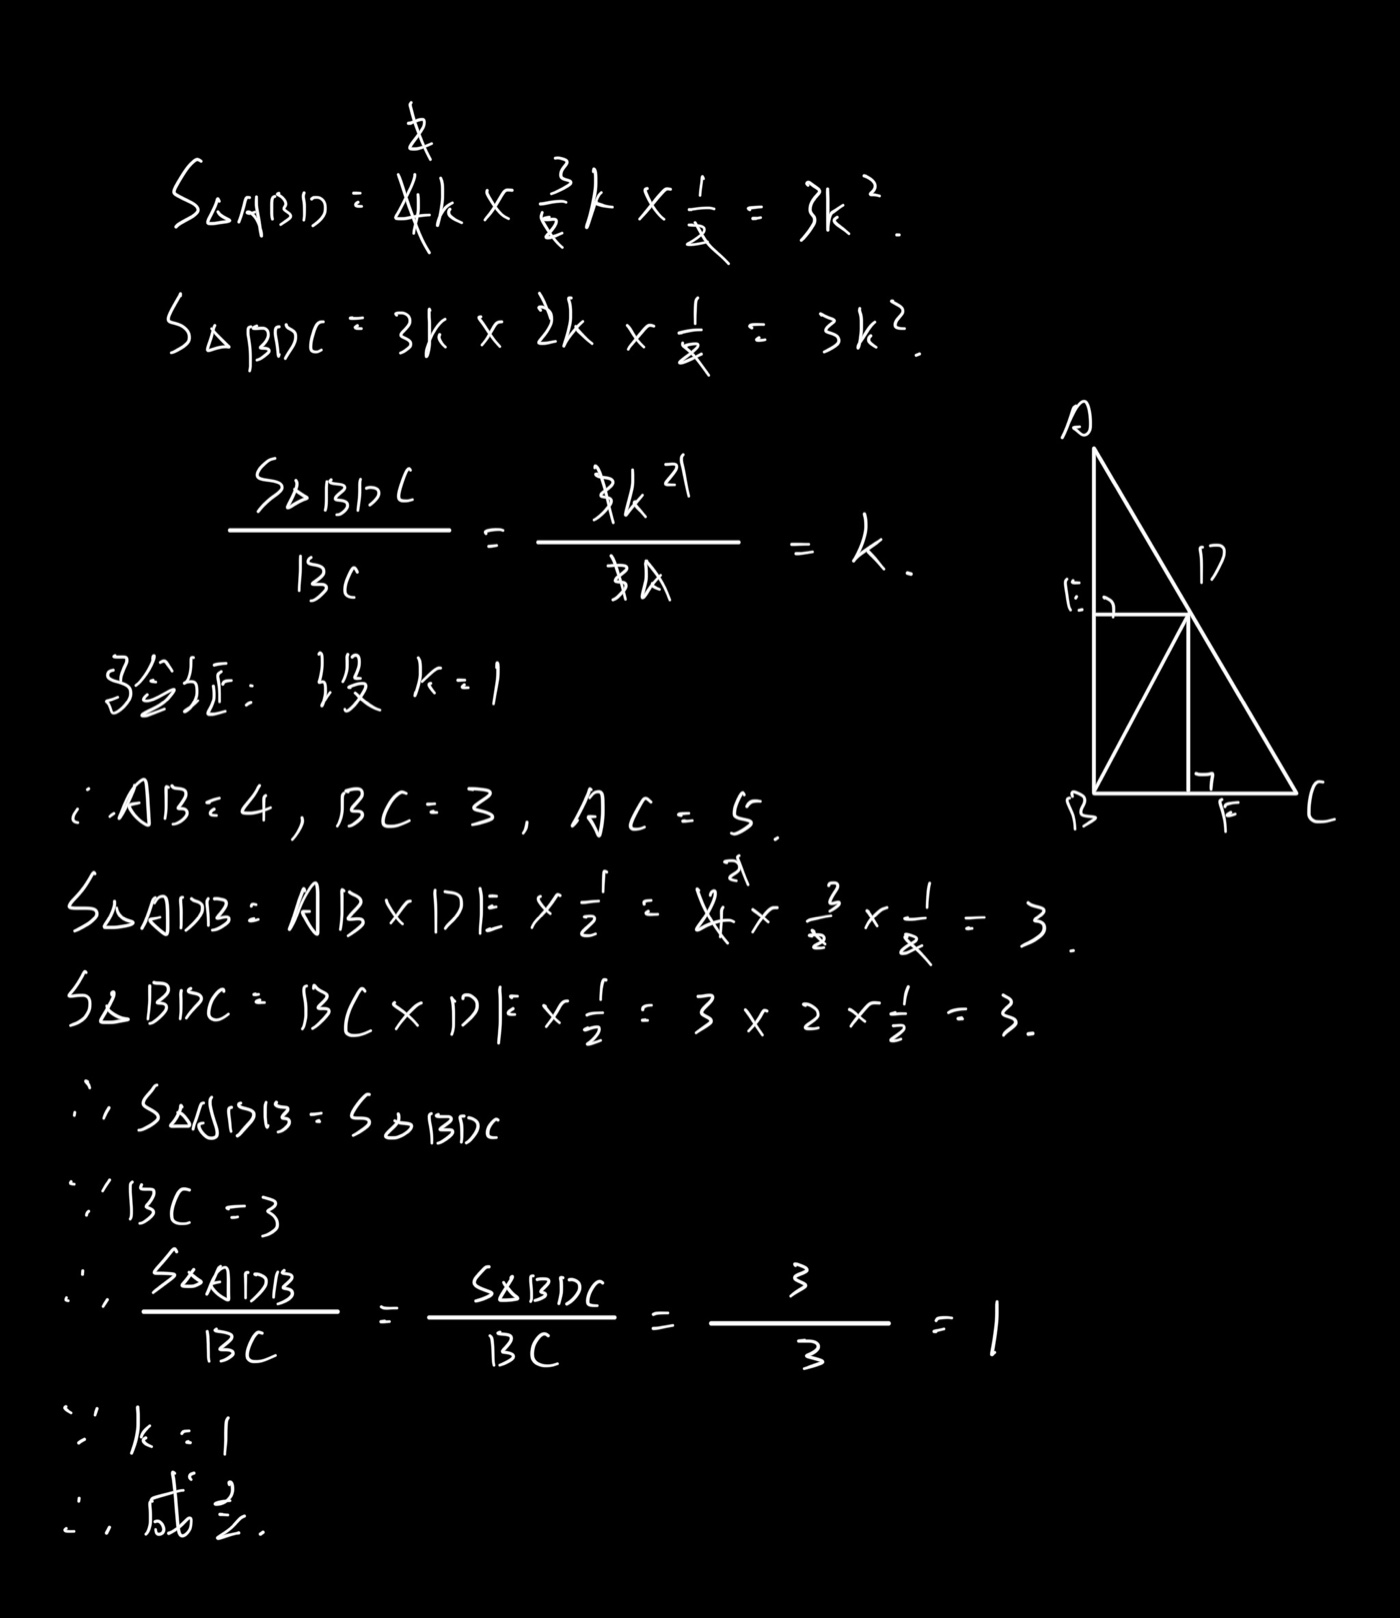 S△ABD = 4k × 3/2 k × 1/2 = 3k².
S△BDC = 3k × 2k × 1/2 = 3k².
S△BDC / BC = 3k² / 3k = k.
A
D
E
B F C
验证: 设 k=1
∴ AB=4, BC=3, AC=5.
S△ADB = AB × DE × 1/2 = 4 × 3/2 × 1/2 = 3.
S△BDC = BC × DF × 1/2 = 3 × 2 × 1/2 = 3.
∴ S△ADB = S△BDC
∵ BC = 3
∴ S△ADB / BC = S△BDC / BC = 3 / 3 = 1
∵ k = 1
∴ 成立.